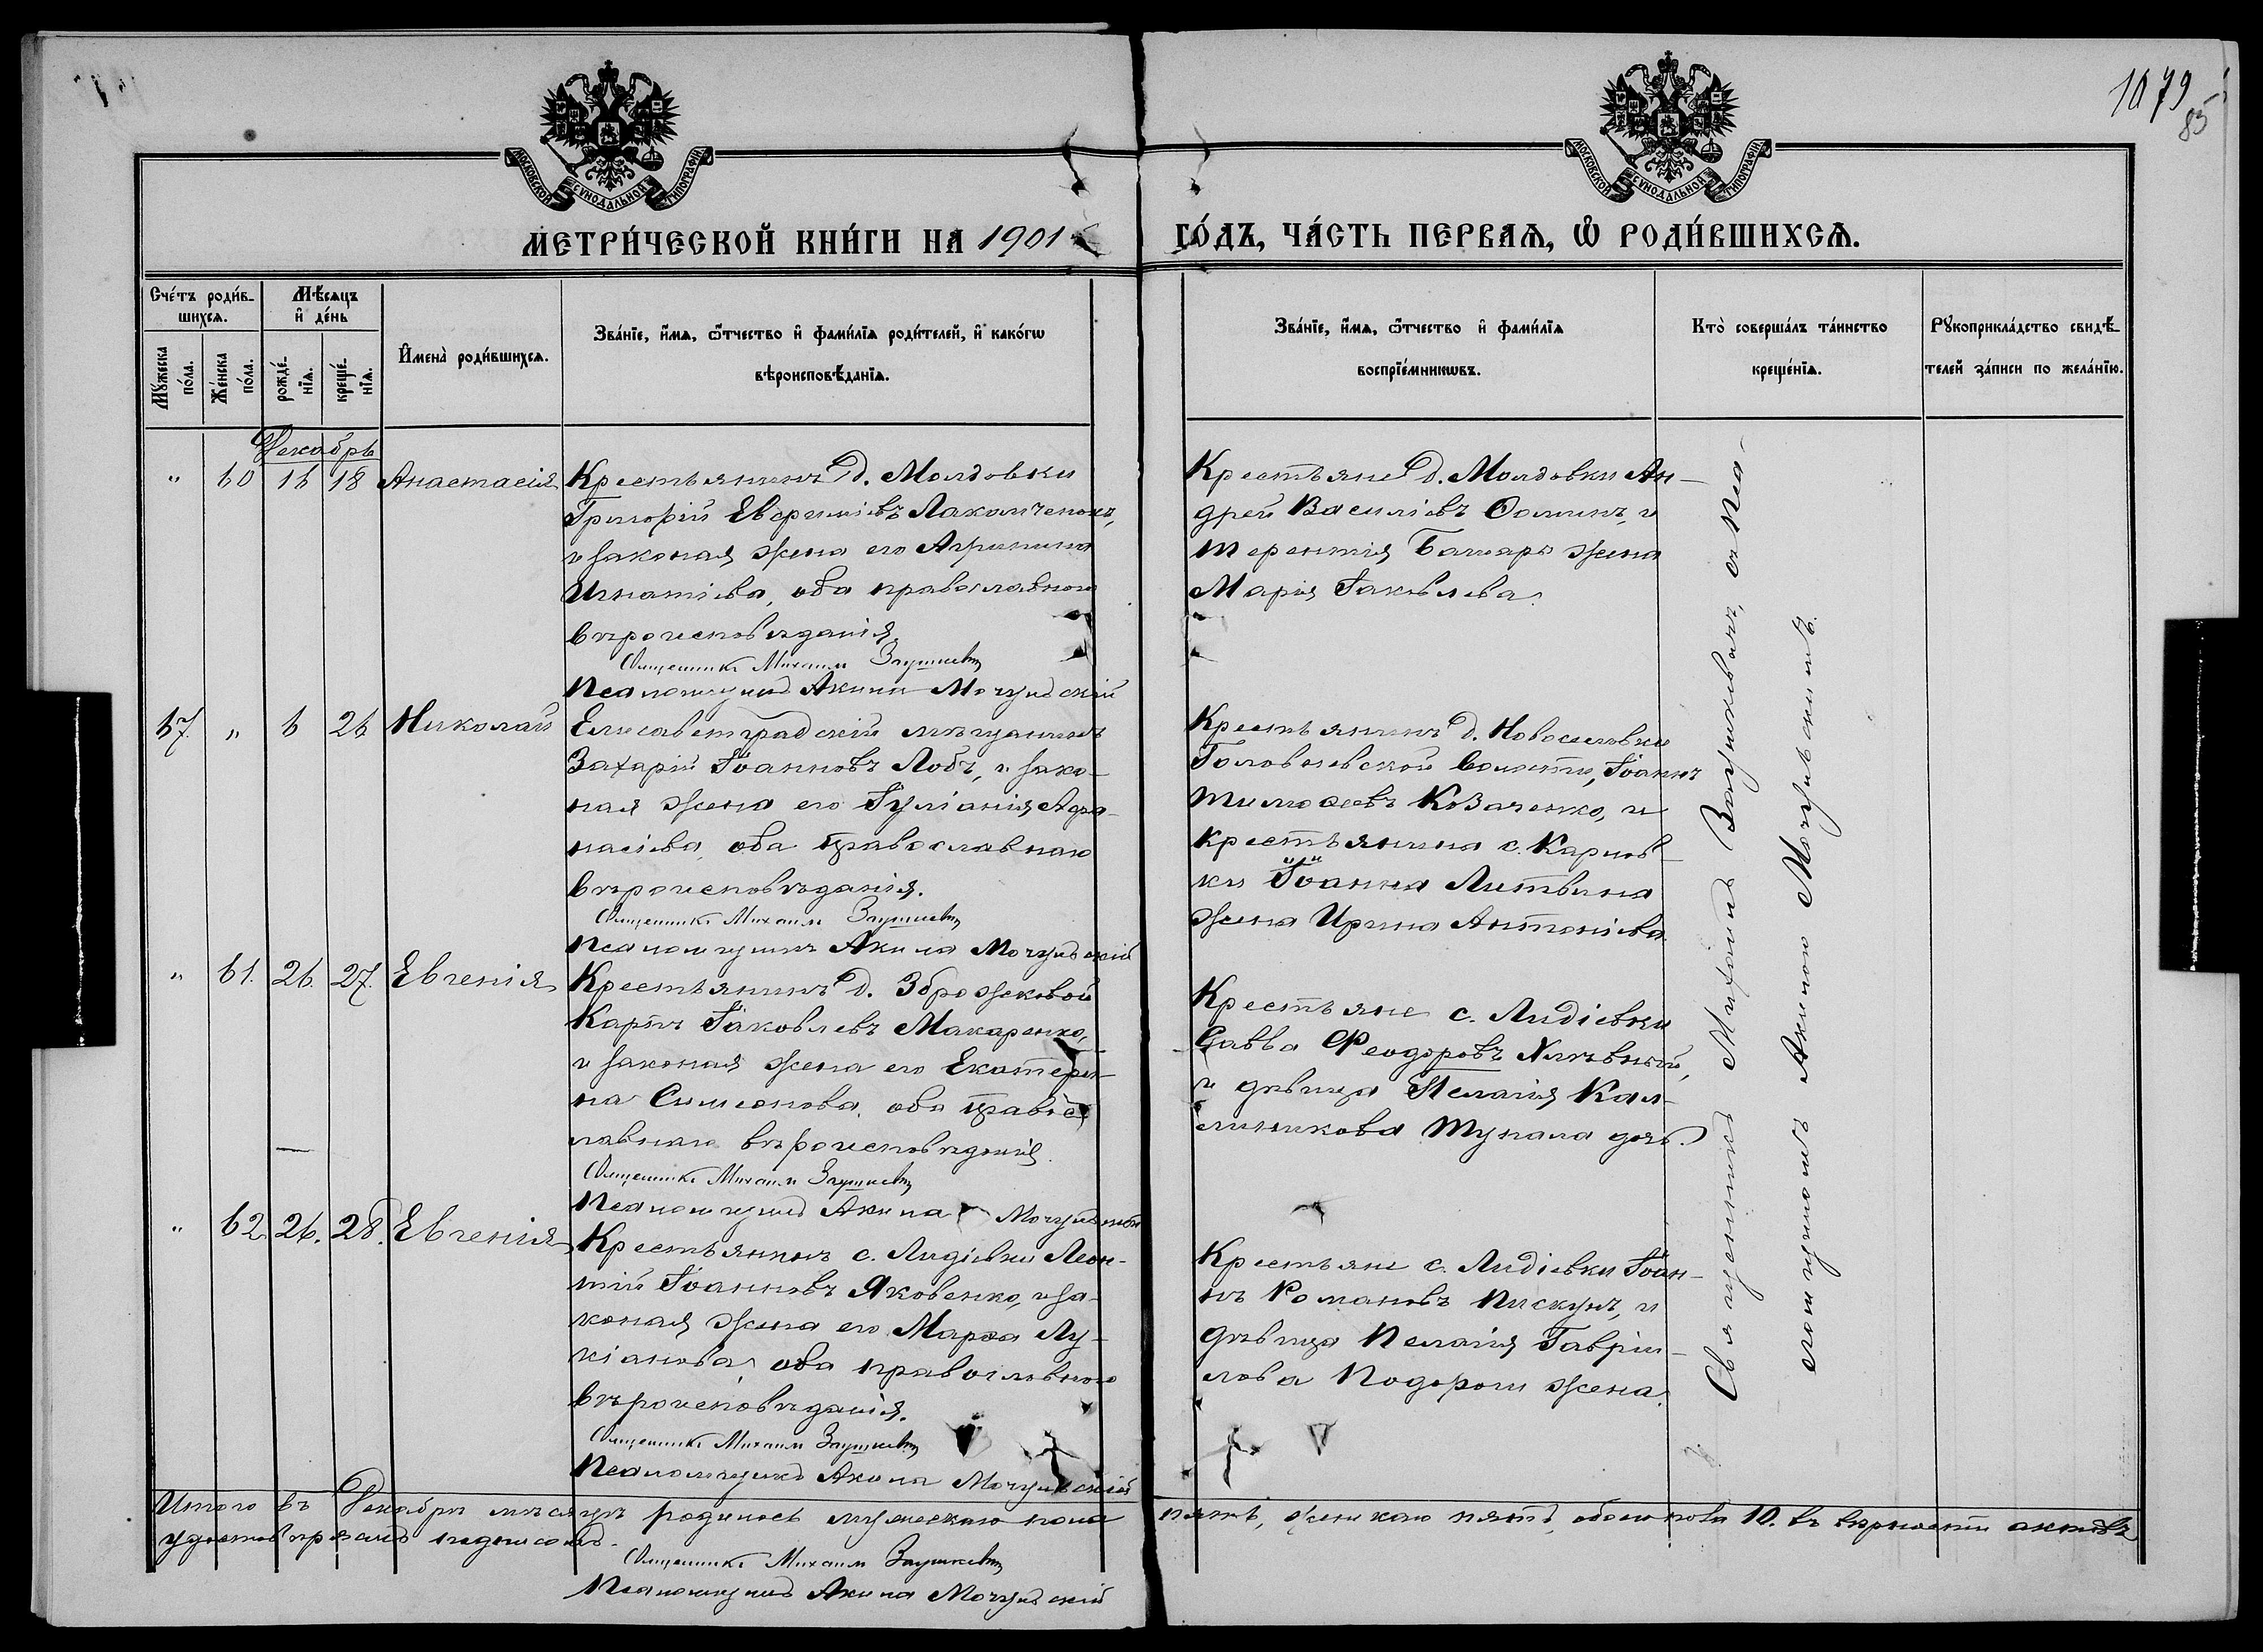 1079
85
МОСКОВСКОЙ СѴНОДАЛЬНОЙ ТИПОГРАФІИ
МОСКОВСКОЙ СѴНОДАЛЬНОЙ ТИПОГРАФІИ
МЕТРИ́ЧЕСКОЙ КНИ́ГИ НА 1901 ГО́ДЪ, ЧА́СТЬ ПЕРВАѦ, Ѡ РОДИ́ВШИХСѦ.
Сче́тъ роди́в-
шихсѧ.
Мꙋ́жеска
по́ла.
Же́нска
по́ла.
Мѣ́сѧцъ
и҆ де́нь
рожде́-
нїѧ.
креще́-
нїѧ.
И҆мена̀ роди́вшихсѧ.
Зва́нїе, и҆́мѧ, ѻ҆́тчество и҆ фамѝлїѧ роди́телей, и҆ како́гѡ
вѣроисповѣ́данїѧ.
Зва́нїе, и҆́мѧ, ѻ҆́тчество и҆ фамѝлїѧ
воспрїе́мникѡвъ.
Кто̀ соверша́лъ та́инство
креще́нїѧ.
Рꙋкоприкла́дство свидѣ́-
телей за́писи по жела́нїю.
Декабрь
" 60 16 18 Анастасія
Крестьянинъ д. Молдовки
Григорій Евфиміевъ Лакомченокъ,
и законая жена его Агрипина
Игнатіева, оба православного
вѣроисповѣданія.
Священникъ Михаилъ
Псаломщикъ Акила Мочульскій
Крестьяне д. Молдовки Ан-
дрей Василіевъ Ѳоминъ, и
Терентія жена
Марія Іаковлева.
67. " 6 26 Николай
Елисаветградскій мѣщанинъ
Захарій Іоанновъ Лобъ, и зако-
ная жена его Іуліанія Аѳа-
насіева, оба православнаго
вѣроисповѣданія.
Священникъ Михаилъ
Псаломщикъ Акила Мочульскій
Крестьянинъ д. Новоселовки
волости, Іоаннъ
Тимоѳеевъ Козаченко, и
крестьянина с. Карлов-
ки Іоанна Литвина
жена Ирина Антоніева.
" 61. 26. 27. Евгенія
Крестьянинъ д. Зброжковой
Карпъ Іаковлевъ Макаренко,
и законая жена его Екатери-
на Симеонова, оба право́с-
лавнаго вѣроисповѣданія.
Священникъ Михаилъ
Псаломщикъ Акила Мочульскій
Крестьяне с. Лидіевки
Савва Феодоровъ Хлѣвный,
и дѣвица Пелагія Кал-
линикова Тупала дочь.
" 62. 26. 28. Евгенія
Крестьянинъ с. Лидіевки Леон-
тій Іоанновъ Яковенко, и за-
коная жена его Марѳа Лу-
кіанова, оба православного
вѣроисповѣданія.
Священникъ Михаилъ
Псаломщикъ Акила Мочульскій
Крестьяне с. Лидіевки Іоан-
нъ Романовъ Пискунъ, и
дѣвица Пелагія Гавріи-
лова Подороги жена.
Священникъ Михаилъ съ Пса-
ломщикомъ Акилою Мочульскимъ.
Итого въ Декабрѣ мѣсяцѣ родилось мужескаго пола пять, женскаго пять, обоего пола 10. въ вѣрности актовъ
Священникъ Михаилъ
Псаломщикъ Акила Мочульскій